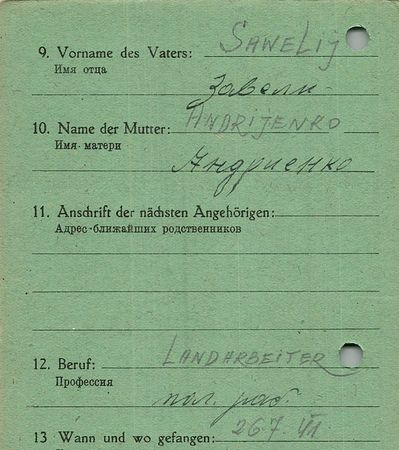 9. Vorname des Vaters: SAWELIJ
Имя отца
Завели
10. Name der Mutter: ANDRIJENKO
Имя матери
Андриенко
11. Anschrift der nächsten Angehörigen:
Адрес ближайших родственников
12. Beruf: LANDARBEITER
Профессия
пол. раб.
13 Wann und wo gefangen: 26.7.41